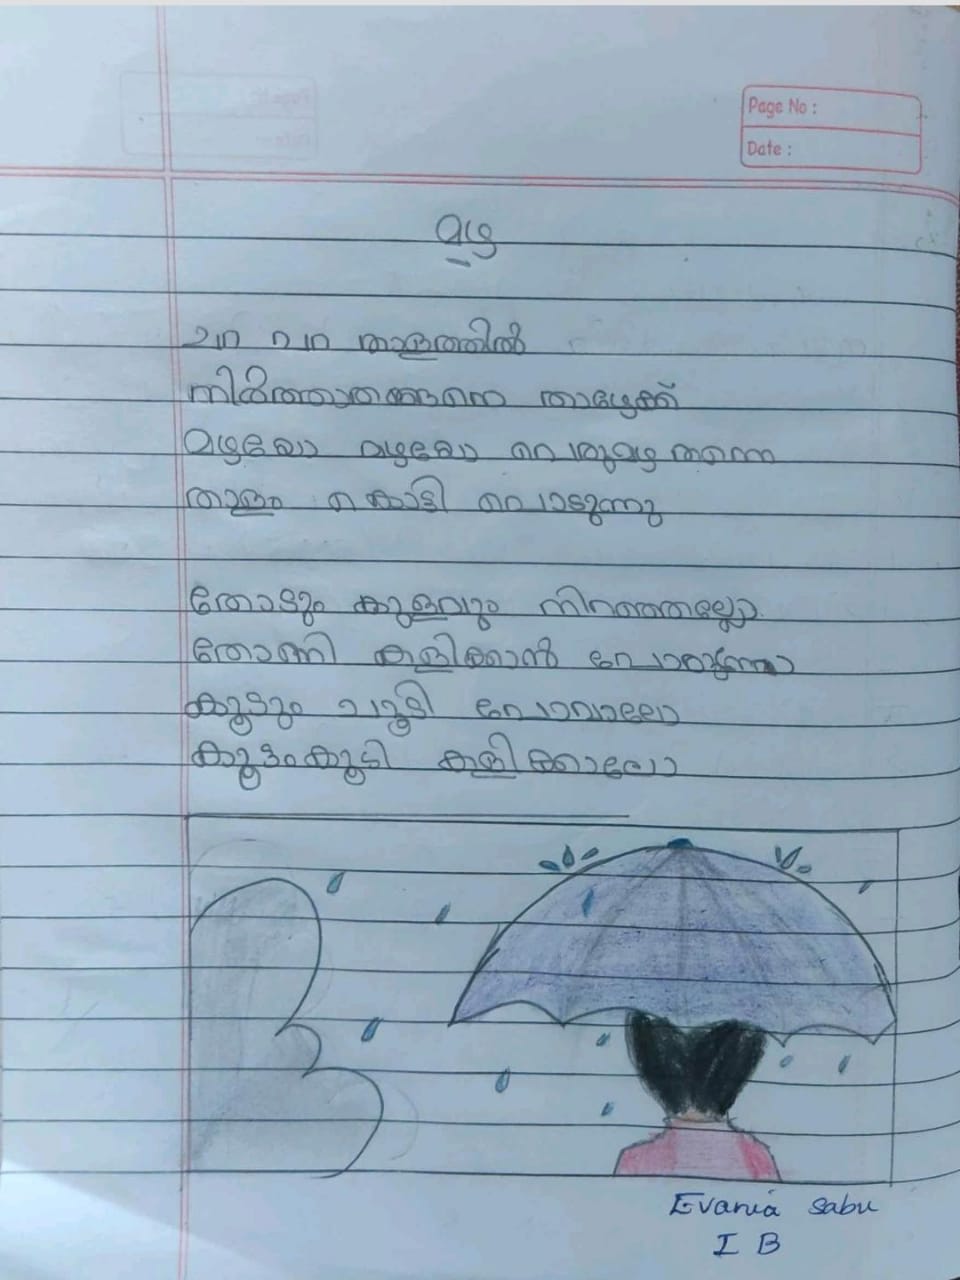 Page No :
Date :
മഴ
ചറ പറ താളത്തിൽ
നിർത്താതങ്ങനെ താഴേക്ക്
മഴയോ മഴയോ പെരുമഴ തന്നെ
താളം കൊട്ടി പൊടുന്നു
തോടും കുളവും നിറഞ്ഞല്ലോ
തോണി കളിക്കാൻ
കൂട്ടും ചൂടി പോവാലോ
കൂട്ടംകൂടി കളിക്കാലോ
Evania Sabu
I B